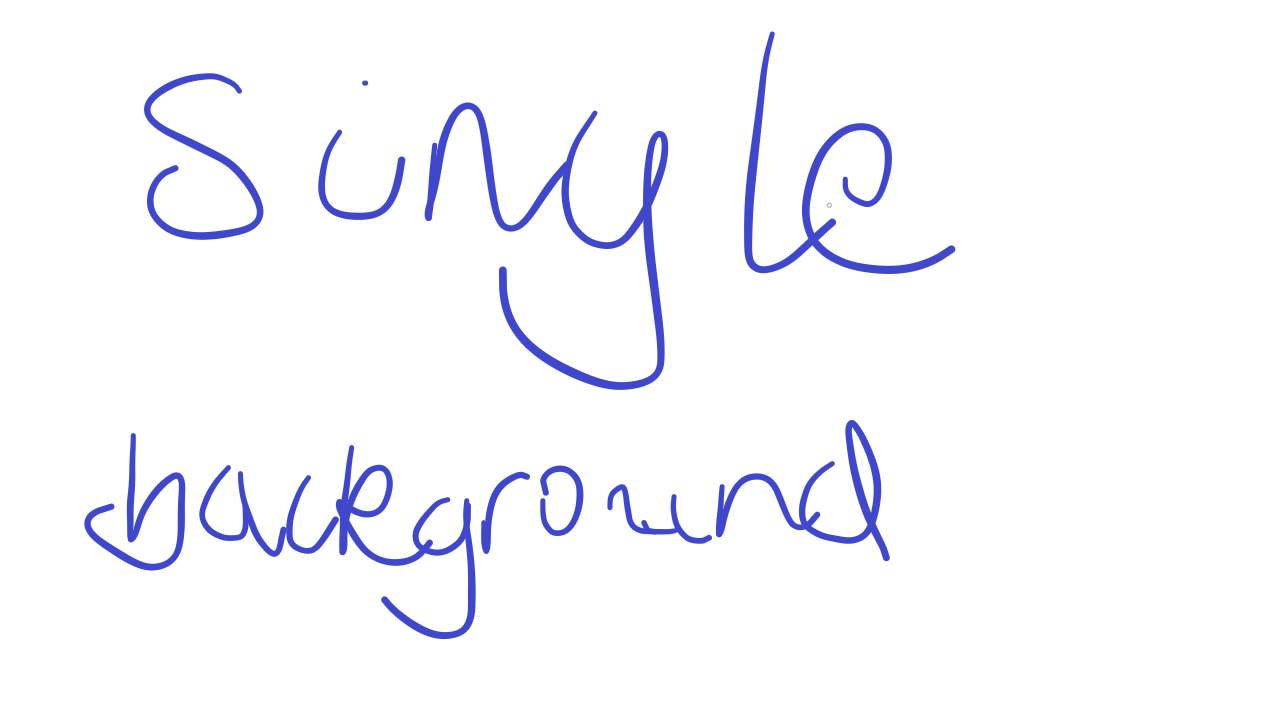 single
background